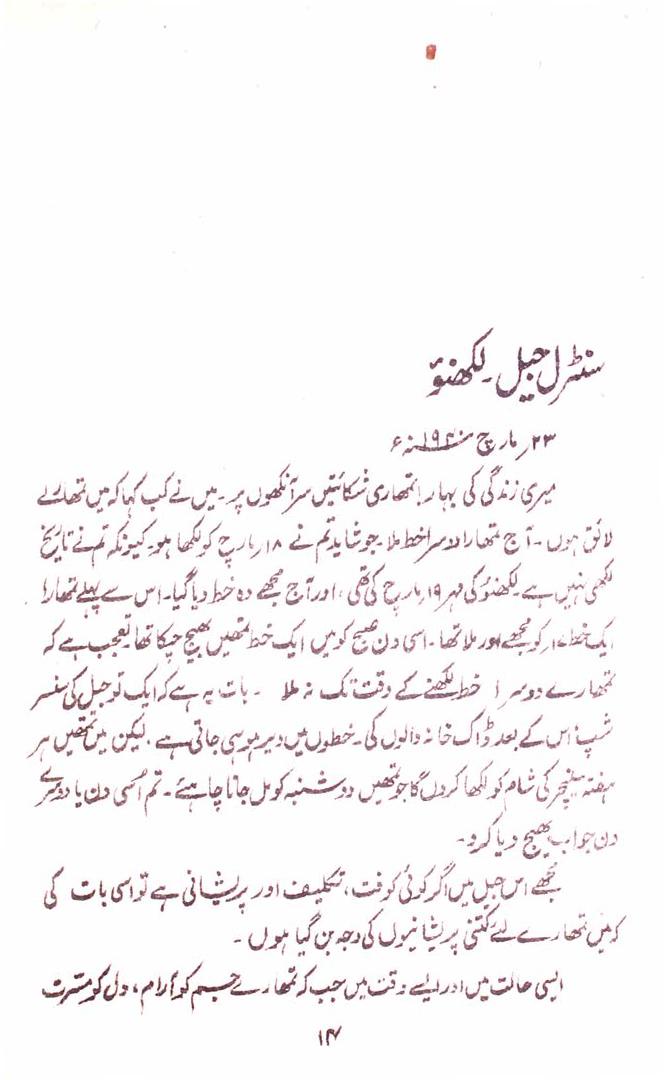 سنٹرل جیل۔ لکھنؤ
۲۳ر مارچ ۱۹۴۰ء
میری زندگی کی بہار! تمھاری شکائتیں سر آنکھوں پر۔ میں نے کب کہا کہ میں تمھارے
لائق ہوں۔ آج تمھارا دوسرا خط ملا۔ جو شاید تم نے ۱۸ر مارچ کو لکھا ہو۔ کیونکہ تم نے تاریخ
لکھی نہیں ہے۔ لکھنؤ کی مہر ۱۹ر مارچ کی تھی، اور آج مجھے وہ خط دیا گیا۔ اس سے پہلے تمھارا
ایک خط ۱۷ر کو مجھے اور ملا تھا۔ اسی دن صبح کو میں ایک خط تمھیں بھیج چکا تھا۔ تعجب ہے کہ
تمھارے دوسرا خط لکھنے کے وقت تک نہ ملا ۔ بات یہ ہے کہ ایک تو جیل کی سنسر
شپ، اس کے بعد ڈاک خانہ والوں کی۔ خطوں میں دیر ہو ہی جاتی ہے۔ لیکن میں تمھیں ہر
ہفتہ سنیچر کی شام کو لکھا کروں گا جو تمھیں دو شنبہ کو مل جانا چاہئے۔ تم اُسی دن یا دوسرے
دن جواب بھیج دیا کرو۔
مجھے اس جیل میں اگر کوئی کوفت، تکلیف اور پریشانی ہے تو اسی بات کی
کہ میں تمھارے لئے کتنی پریشانیوں کی وجہ بن گیا ہوں۔
ایسی حالت میں اور ایسے وقت میں جب کہ تمھارے جسم کو آرام، دل کو مسرت
۱۴